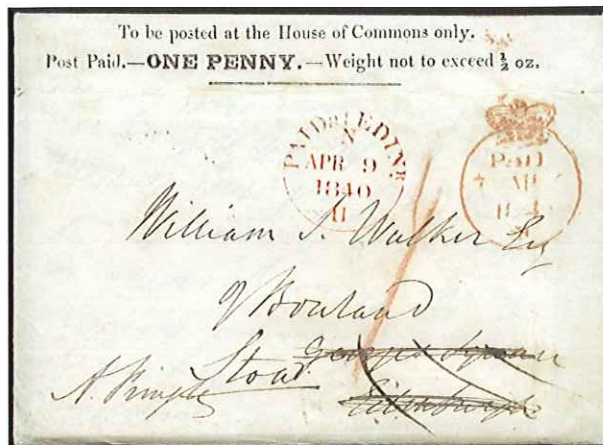 To be posted at the House of Commons only.
Post Paid.—ONE PENNY.—Weight not to exceed ½ oz.
PAID at EDINR
N
APR 9
1840
PAID
4 AP
William S. Walker Esq
of Bowland
Stow
George Square
Edinburgh
A. Pringle